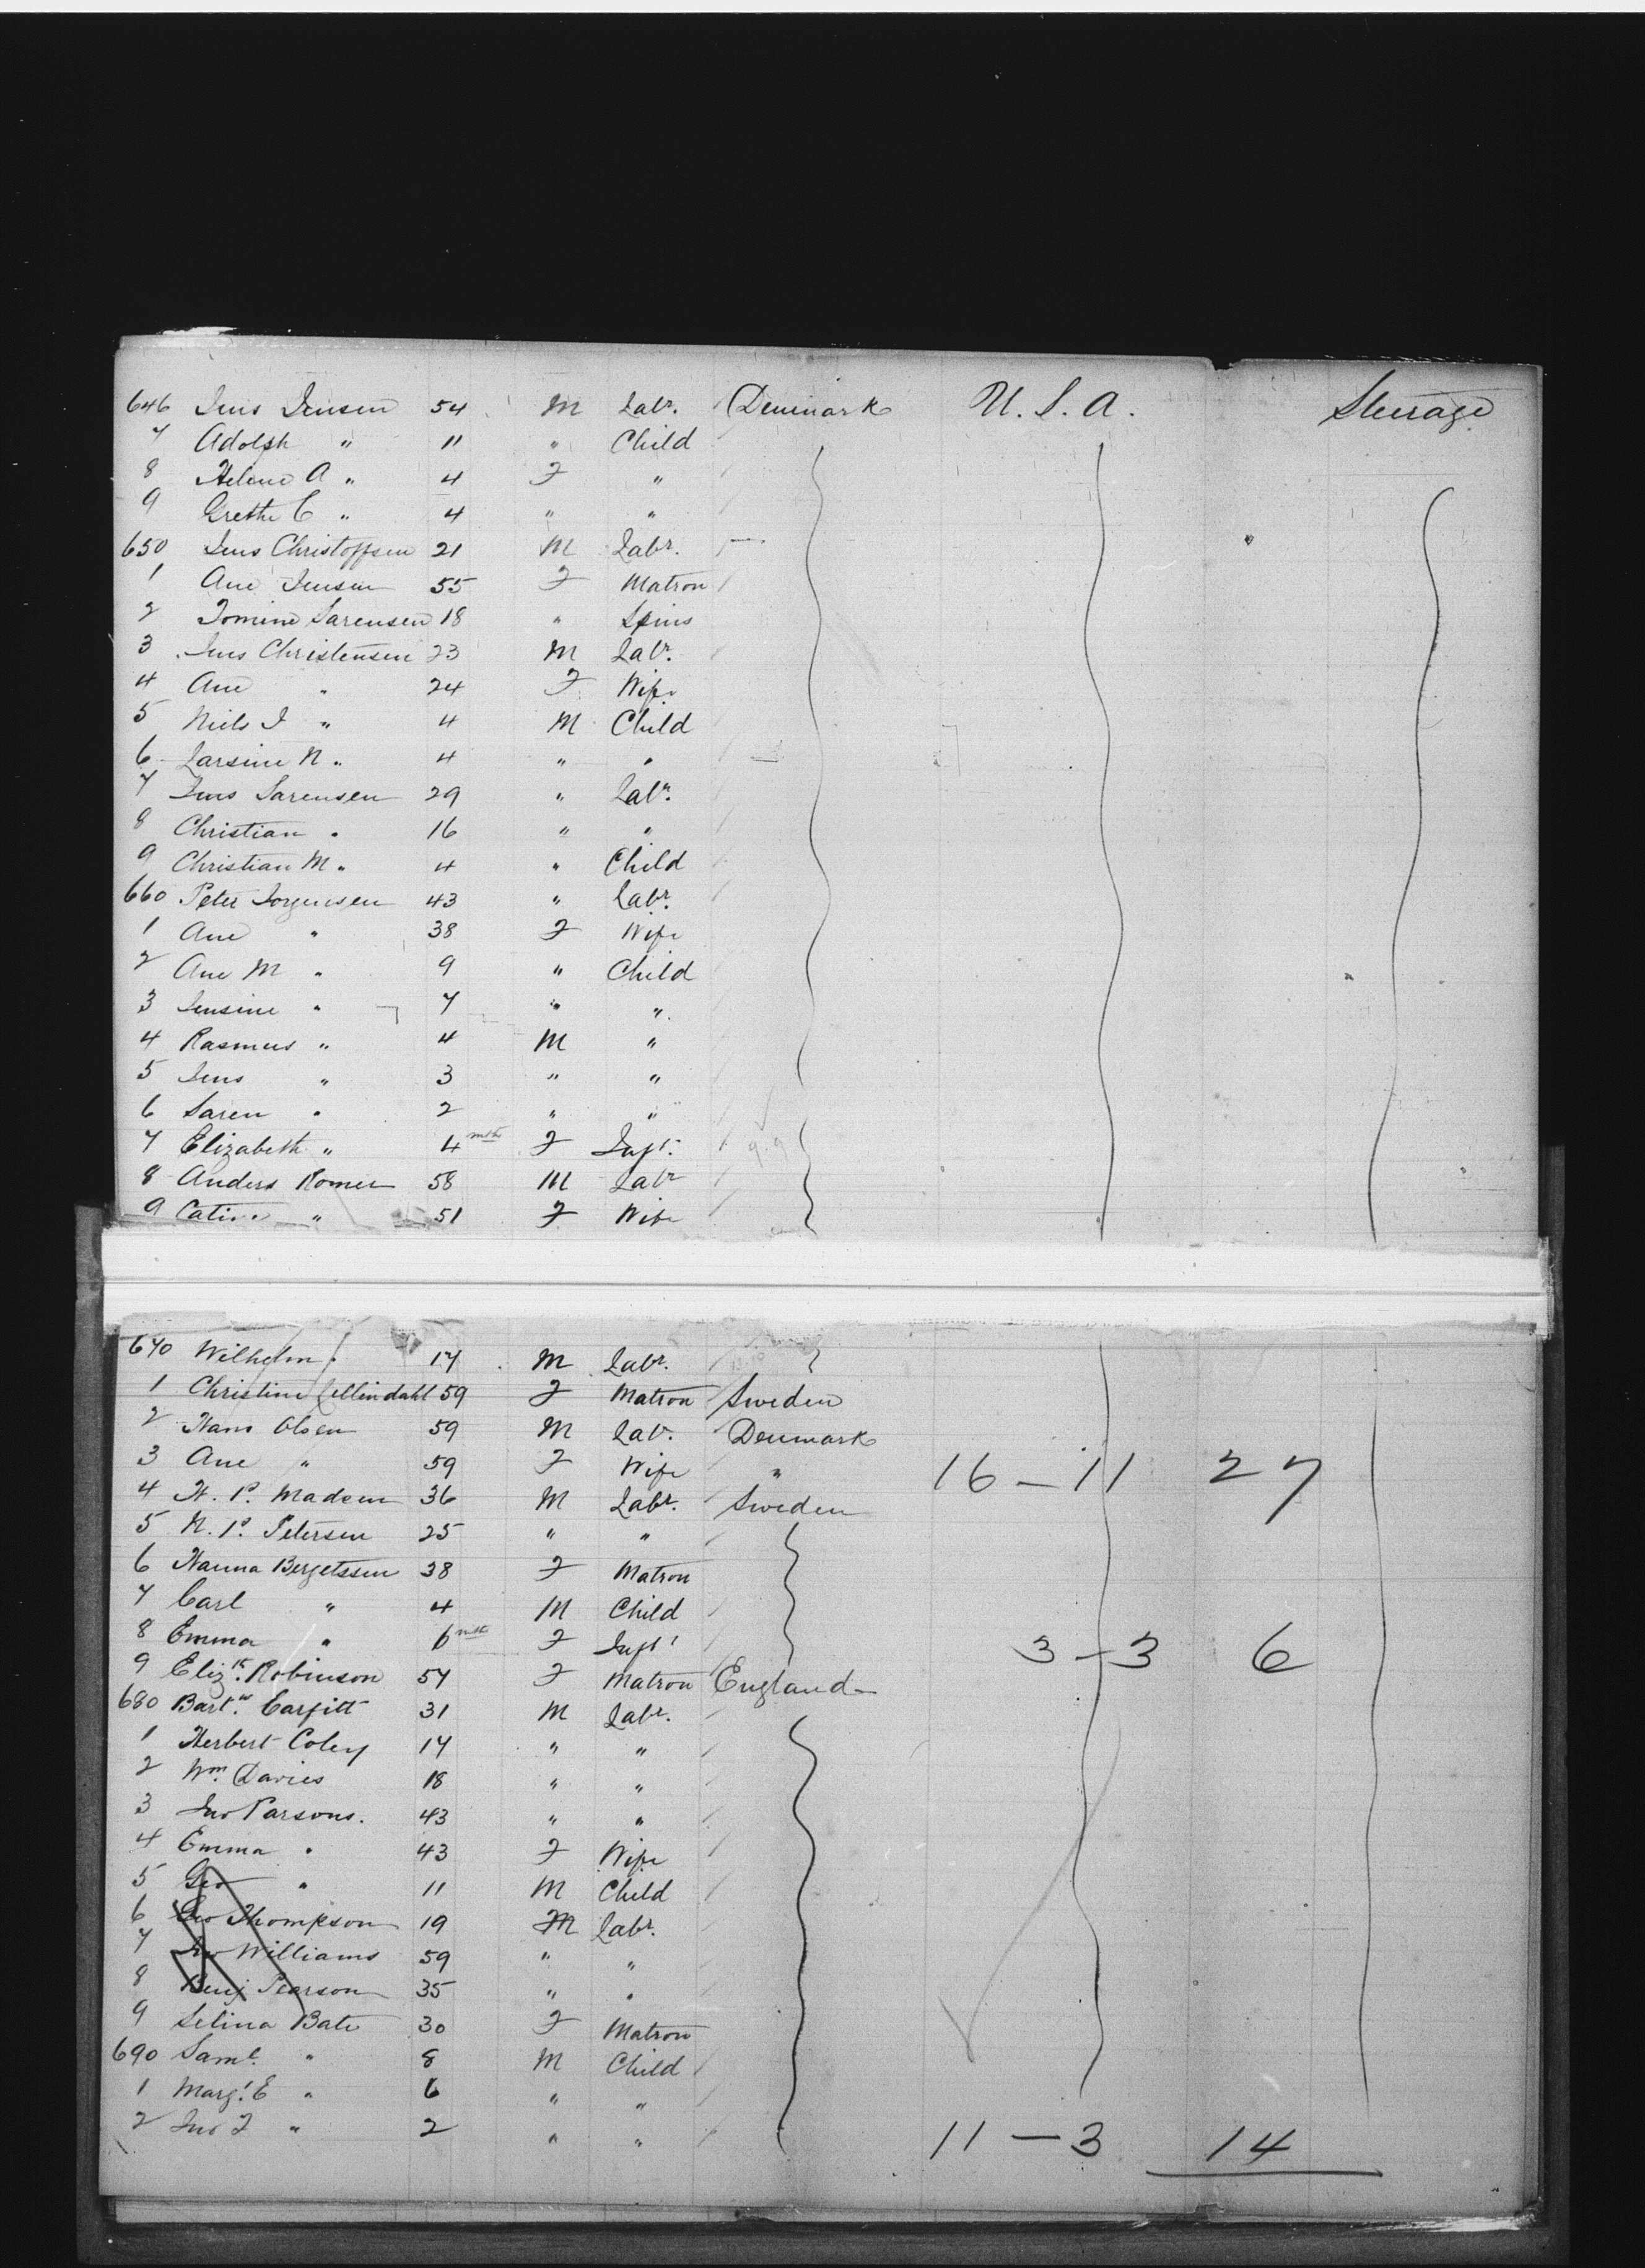 646 Jens Jensen 54 M Labr. Denmark U.S.A. Steerage
7 Adolph " 11 " Child
8 Helene A " 4 F "
9 Grethe C " 4 " "
650 Jens Christoffsen 21 M Labr.
1 Ane Jensen 55 F Matron
2 Tomine Sarensen 18 " Spins
3 Jens Christensen 23 M Labr.
4 Ane " 24 F Wife
5 Niels J " 4 M Child
6 Larsine N " 4 " "
7 Jens Sarensen 29 " Labr.
8 Christian " 16 " "
9 Christian M " 4 " Child
660 Peter Jorgensen 43 " Labr.
1 Ane " 38 F Wife
2 Ane M " 9 " Child
3 Jensine " 7 " "
4 Rasmus " 4 M "
5 Jens " 3 " "
6 Saren " 2 " "
7 Elizabeth " 4 mths F Inft.
8 Anders Romer 58 M Labr
9 " 51 F Wife
670 Wilhelm " 17 M Labr.
1 Christine Cellindahl 59 F Matron Sweden
2 Hans Olsen 59 M Labr. Denmark
3 Ane " 59 F Wife " 16 - 11 27
4 H. P. Madsen 36 M Labr. Sweden
5 N. P. Petersen 25 " "
6 Hanna Bergetssen 38 F Matron
7 Carl " 4 M Child
8 Emma " 6 mths F Inft 3 - 3 6
9 Elizth. Robinson 57 F Matron England
680 Bartw. Carfitt 31 M Labr.
1 Herbert Coley 17 " "
2 Wm. Davies 18 " "
3 Jno Parsons. 43 " "
4 Emma " 43 F Wife
5 Geo " 11 M Child
6 Geo Thompson 19 M Labr.
7 Jno Williams 59 " "
8 Benj Pearson 35 " "
9 Selina Bate 30 F Matron
690 Saml. " 8 M Child
1 Margt. E " 6 " "
2 Jno F " 2 " " 11 - 3 14